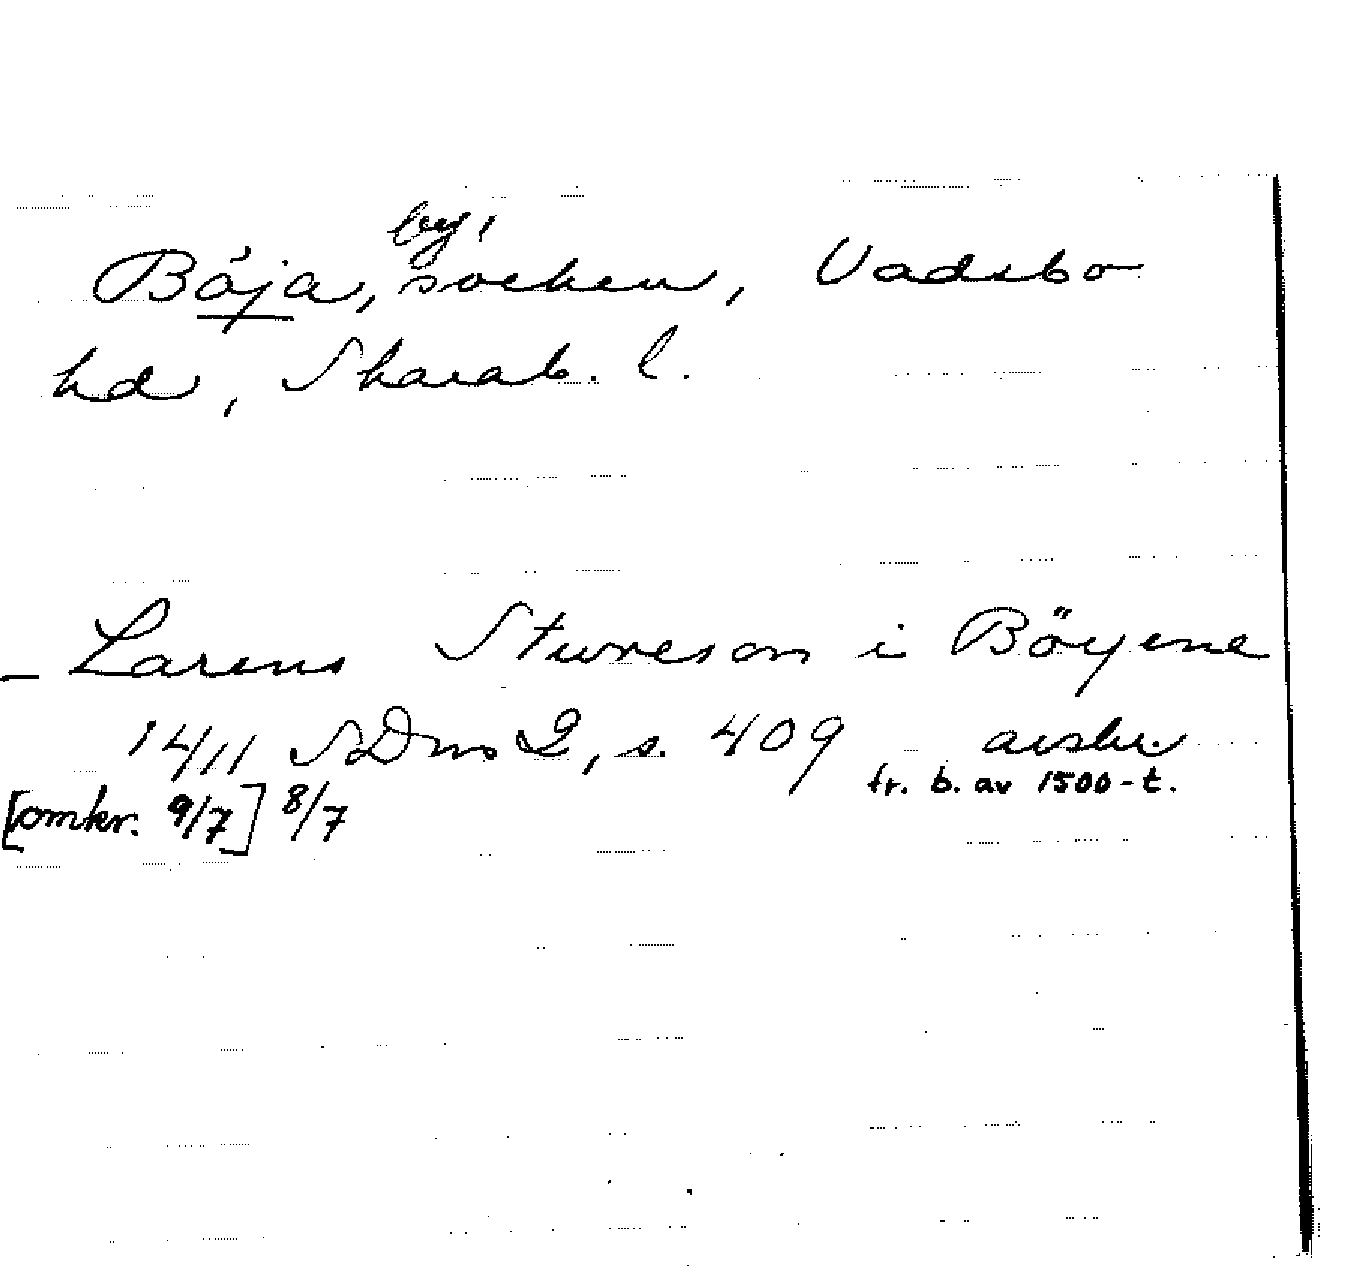 by,
Böja, socken, Vadsbo
hd, Skarab. l.
_ Larens Stureson i Böyene
14/11 SDns 2, s. 409 avskr.
fr. b. av 1500-t.
[omkr. 9/7] 8/7